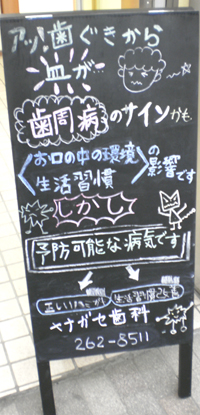 アッ!歯ぐきから
血が…
歯周病のサインかも
お口の中の環境
生活習慣
の影響です
しかし
予防可能な病気です
正しいハミガキ
生活習慣改善
ナガセ歯科
262-8511